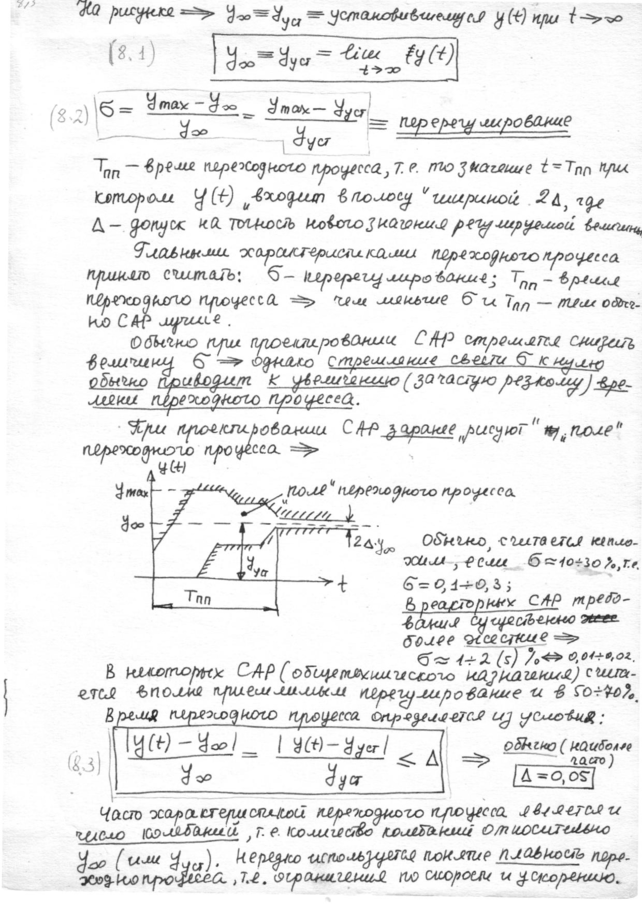 На рисунке ⟹ y∞ ≡ yуст ≡ установившемуся y(t) при t → ∞
(8.1) y∞ = yуст = lim y(t)
t→∞
(8.2) б = (ymax − y∞)/y∞ = (ymax − yуст)/yуст ≡ перерегулирование
Tпп – време переходного процесса, т.е. то значение t = Tпп при
котором y(t) „входит в полосу" шириной 2Δ, где
Δ – допуск на точность нового значения регулируемой величины
Главными характеристиками переходного процесса
принято считать: б – перерегулирование; Tпп – время
переходного процесса ⟹ чем меньше б и Tпп – тем обыч-
но САР лучше.
Обычно при проектировании САР стремятся снизить
величину б ⟹ однако стремление свести б к нулю
обычно приводит к увеличению (зачастую резкому) вре-
мени переходного процесса.
При проектировании САР заранее „рисуют" „поле"
переходного процесса ⟹
y(t)
ymax
„поле" переходного процесса
y∞
2Δ·y∞
yуст
t
Tпп
Обычно, считается непло-
хим, если б ≈ 10÷30%, т.е.
б = 0,1÷0,3;
В реакторных САР требо-
вания существенно
более жесткие ⟹
б ≈ 1÷2 (5) % ⟺ 0,01÷0,02.
В некоторых САР (общетехнического назначения) счита-
ется вполне приемлимым перегулирование и в 50÷70%.
Время переходного процесса определяется из условия:
(8.3) |y(t) − y∞|/y∞ = |y(t) − yуст|/yуст ≤ Δ ⟹ обычно (наиболее
часто)
Δ = 0,05
Часто характеристикой переходного процесса является и
число колебаний, т.е. количество колебаний относительно
y∞ (или yуст). Нередко используется понятие плавность пере-
ходн процесса, т.е. ограничения по скорости и ускорению.